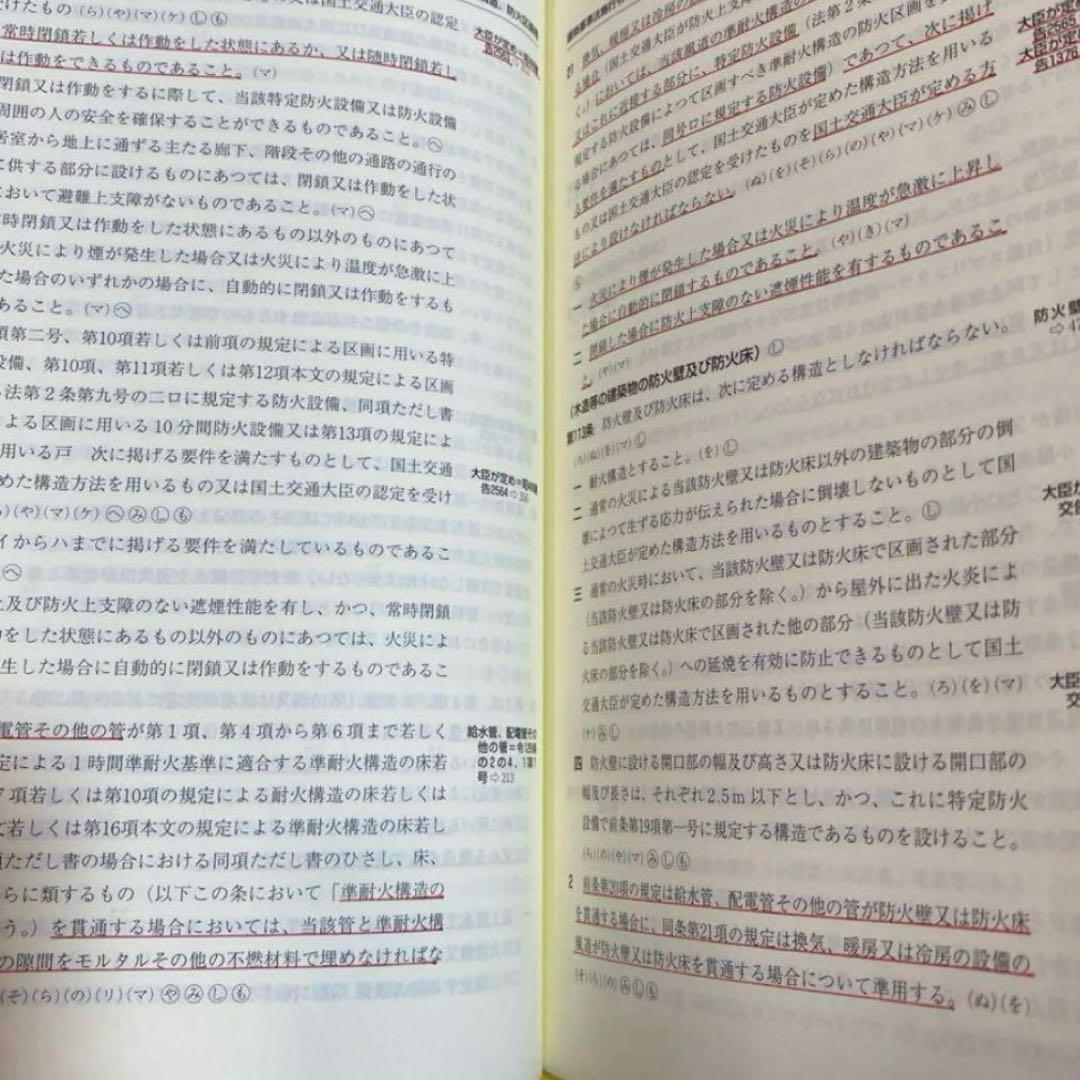 けたもの(ら)(や)(マ)(ケ)Ⓛも
又は国土交通大臣の認定
常時閉鎖若しくは作動をした状態にあるか、又は随時閉鎖若し
は作動をできるものであること。(マ)
閉鎖又は作動をするに際して、当該特定防火設備又は防火設備
周囲の人の安全を確保することができるものであること。
居室から地上に通ずる主たる廊下、階段その他の通路の通行の
に供する部分に設けるものにあつては、閉鎖又は作動をした状
において避難上支障がないものであること。(マ)
時閉鎖又は作動をした状態にあるもの以外のものにあつて
火災により煙が発生した場合又は火災により温度が急激に上
た場合のいずれかの場合に、自動的に閉鎖又は作動をするも
あること。(マ)
項第二号、第10項若しくは前項の規定による区画に用いる特
設備、第10項、第11項若しくは第12項本文の規定による区画
法第2条第九号の二ロに規定する防火設備、同項ただし書
よる区画に用いる10分間防火設備又は第13項の規定によ
用いる戸 次に掲げる要件を満たすものとして、国土交通
めた構造方法を用いるもの又は国土交通大臣の認定を受け
)(や)(マ)(ケ)へみしも
イからハまでに掲げる要件を満たしているものであるこ
へ
上及び防火上支障のない遮煙性能を有し、かつ、常時閉鎖
をした状態にあるもの以外のものにあつては、火災によ
生した場合に自動的に閉鎖又は作動をするものであるこ
電管その他の管が第1項、第4項から第6項まで若しく
定による1時間準耐火基準に適合する準耐火構造の床若
7項若しくは第10項の規定による耐火構造の床若しくは
若しくは第16項本文の規定による準耐火構造の床若し
ただし書の場合における同項ただし書のひさし、床、
らに類するもの(以下この条において「準耐火構造の
う。)を貫通する場合においては、当該管と準耐火構
の隙間をモルタルその他の不燃材料で埋めなければな
(そ)(ら)(の)(リ)(マ)やみしも
大臣が定め
告2564⇨356
給水管、配電管その
他の管=令129条
の2の4、1項
号⇨213
21 換気、暖房又は冷房の
る場合(国土交通大臣が防火上支障
く。)においては、当該風道の準耐火構造の
又はこれに近接する部分に、特定防火設備(法第2条
規定する防火設備によつて区画すべき準耐火構造の防火区画を
る場合にあつては、同号ロに規定する防火設備)であつて、次に掲げ
る要件を満たすものとして、国土交通大臣が定めた構造方法を用いる
もの又は国土交通大臣の認定を受けたものを国土交通大臣が定める方
法により設けなければならない。(ぬ)(を)(そ)(ら)(の)(や)(マ)(ケ)みし
一 火災により煙が発生した場合又は火災により温度が急激に上昇し
た場合に自動的に閉鎖するものであること。(や)(き)(マ)
二 閉鎖した場合に防火上支障のない遮煙性能を有するものであるこ
と。(や)(マ)
(木造等の建築物の防火壁及び防火床)Ⓛ
第113条 防火壁及び防火床は、次に定める構造としなければならない。
(ろ)(ぬ)(を)(マ)Ⓛ
一 耐火構造とすること。(を)Ⓛ
二 通常の火災による当該防火壁又は防火床以外の建築物の部分の倒
壊によつて生ずる応力が伝えられた場合に倒壊しないものとして国
土交通大臣が定めた構造方法を用いるものとすること。Ⓛ
三 通常の火災時において、当該防火壁又は防火床で区画された部分
(当該防火壁又は防火床の部分を除く。)から屋外に出た火炎によ
る当該防火壁又は防火床で区画された他の部分(当該防火壁又は防
火床の部分を除く。)への延焼を有効に防止できるものとして国土
交通大臣が定めた構造方法を用いるものとすること。(ろ)(を)(マ)
(ケ)みⓁ
四 防火壁に設ける開口部の幅及び高さ又は防火床に設ける開口部の
幅及び長さは、それぞれ2.5m以下とし、かつ、これに特定防火
設備で前条第19項第一号に規定する構造であるものを設けること。
(ら)(の)(や)(マ)みしも
2 前条第20項の規定は給水管、配電管その他の管が防火壁又は防火床
を貫通する場合に、同条第21項の規定は換気、暖房又は冷房の設備の
風道が防火壁又は防火床を貫通する場合について準用する。(ぬ)(を)
(そ)(ら)(の)みしも
大臣が定め
告2565
大臣が定
告1376
防火壁
大臣が
交
大臣
交